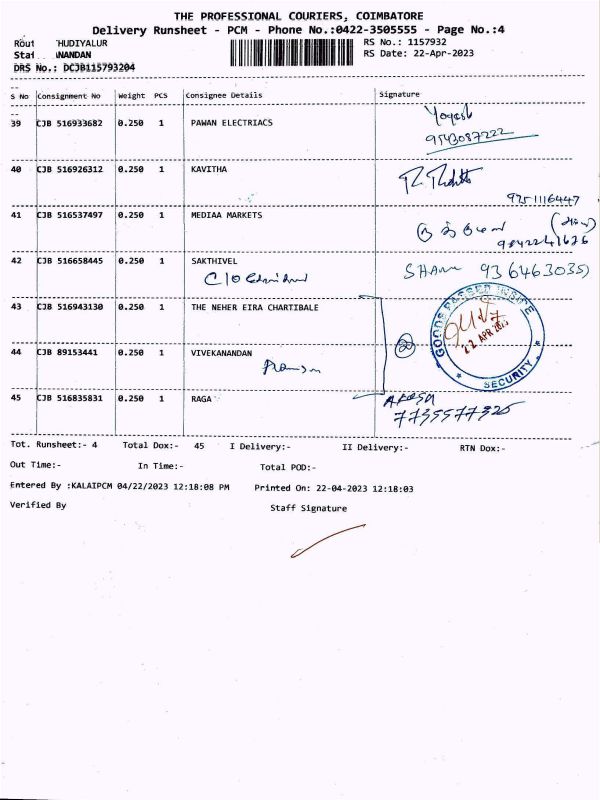 THE PROFESSIONAL COURIERS, COIMBATORE
Delivery Runsheet - PCM - Phone No.:0422-3505555 - Page No.:4
Rout HUDIYALUR RS No.: 1157932
Staf NANDAN RS Date: 22-Apr-2023
DRS No.: DCJB115793204
S No Consignment No Weight PCS Consignee Details Signature
39 CJB 516933682 0.250 1 PAWAN ELECTRIACS Yogesh
9543087222
40 CJB 516926312 0.250 1 KAVITHA
9251116447
41 CJB 516537497 0.250 1 MEDIAA MARKETS
9842241676
42 CJB 516658445 0.250 1 SAKTHIVEL
C/o
43 CJB 516943130 0.250 1 THE NEHER EIRA CHARTIBALE
GOODS PASSED INSIDE
22 APR 2023
SECURITY
44 CJB 89153441 0.250 1 VIVEKANANDAN
45 CJB 516835831 0.250 1 RAGA
Tot. Runsheet:- 4 Total Dox:- 45 I Delivery:- II Delivery:- RTN Dox:-
Out Time:- In Time:- Total POD:-
Entered By :KALAIPCM 04/22/2023 12:18:08 PM Printed On: 22-04-2023 12:18:03
Verified By Staff Signature